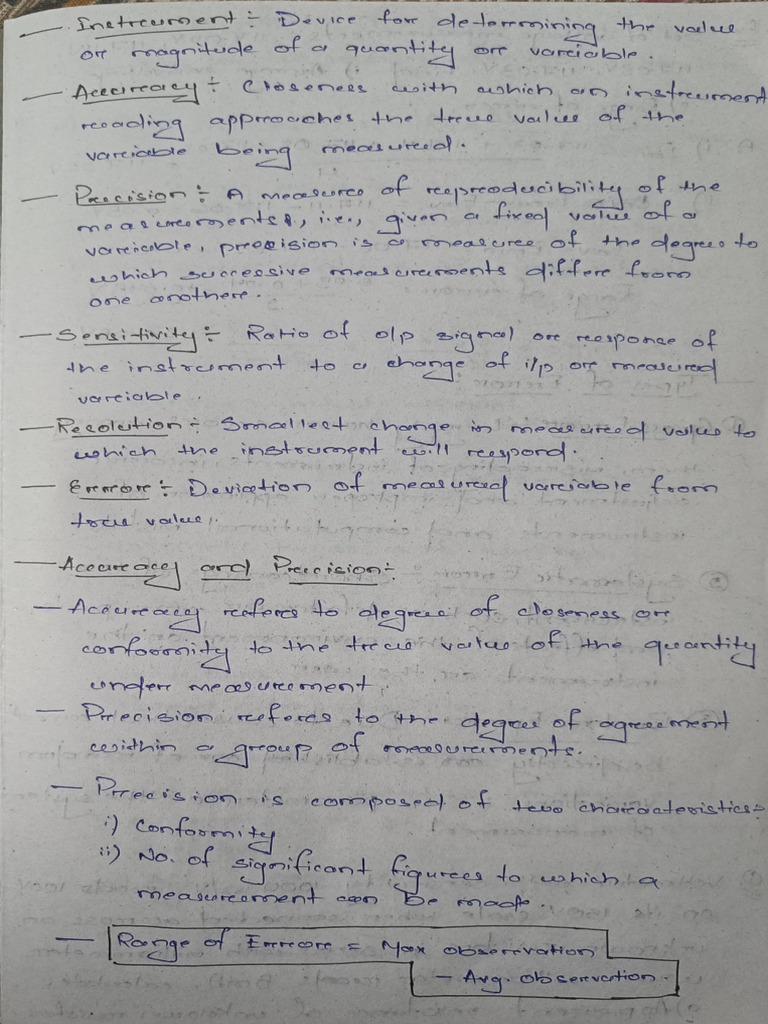 — Instrument :- Device for determining the value
or magnitude of a quantity or variable.
— Accuracy :- Closeness with which an instrument
reading approaches the true value of the
variable being measured.
— Precision :- A measure of reproducibility of the
measurements, i.e., given a fixed value of a
variable, precision is a measure of the degree to
which successive measurements differ from
one another.
— Sensitivity :- Ratio of o/p signal or response of
the instrument to a change of i/p or measured
variable.
— Resolution :- Smallest change in measured value to
which the instrument will respond.
— Error :- Deviation of measured variable from
true value.
— Accuracy and Precision :-
— Accuracy refers to degree of closeness or
conformity to the true value of the quantity
under measurement.
— Precision refers to the degree of agreement
within a group of measurements.
— Precision is composed of two characteristics :-
i) Conformity
ii) No. of significant figures to which a
measurement can be made.
— Range of Error = Max observation
- Avg. observation.